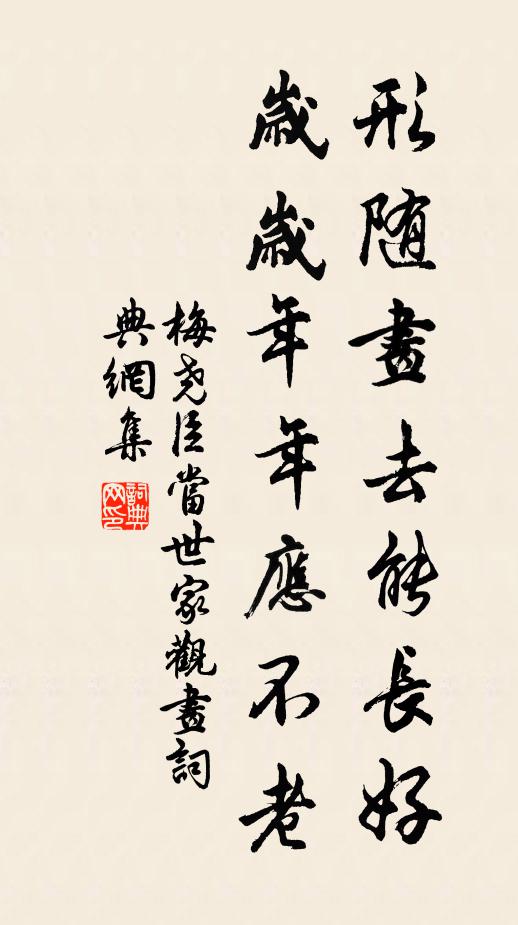 形随畫去能長好
歲歲年年應不老
梅尧臣當世家觀畫詞
典網集
詞典網印